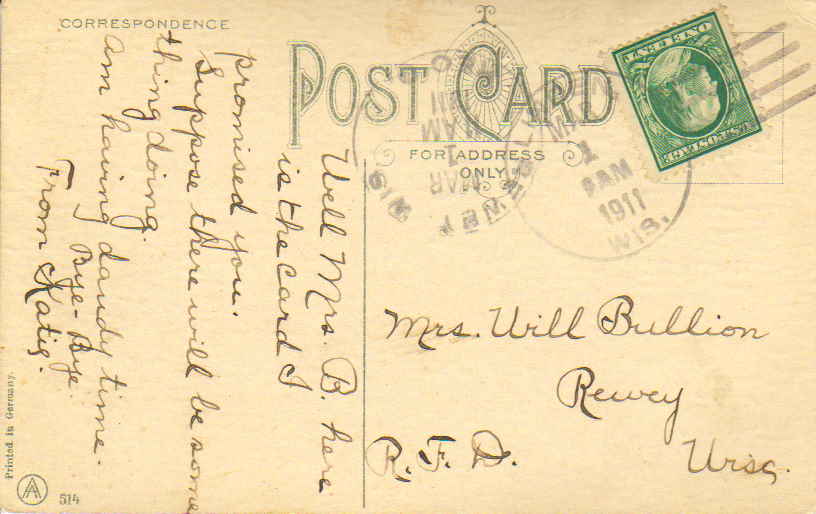 CORRESPONDENCE
POST CARD
FOR ADDRESS
ONLY
Well Mrs. B. here
is the card I
promised you.
Suppose there will be some
thing doing.
am having dandy time.
Bye-Bye.
From Katie.
Mrs. Will Bullion
Rewey
R.F.D. Wisc.
MAR
1
AM
REWEY
WIS
1
8AM
1911
WIS.
U.S. POSTAGE
ONE CENT
Printed in Germany.
A
514